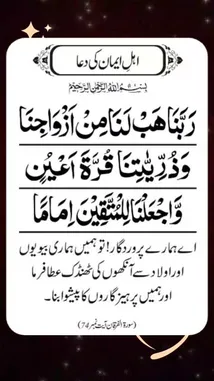 اہلِ ایمان کی دعا
بِسْمِ اللهِ الرَّحْمٰنِ الرَّحِيْمِ
رَبَّنَا هَبْ لَنَا مِنْ اَزْوَاجِنَا
وَذُرِّيّٰتِنَا قُرَّةَ اَعْيُنٍ
وَّاجْعَلْنَا لِلْمُتَّقِيْنَ اِمَامًا
اے ہمارے پروردگار! تو ہمیں ہماری بیویوں
اور اولاد سے آنکھوں کی ٹھنڈک عطا فرما
اور ہمیں پرہیزگاروں کا پیشوا بنا۔
(سورۃ الفرقان آیت نمبر 74)